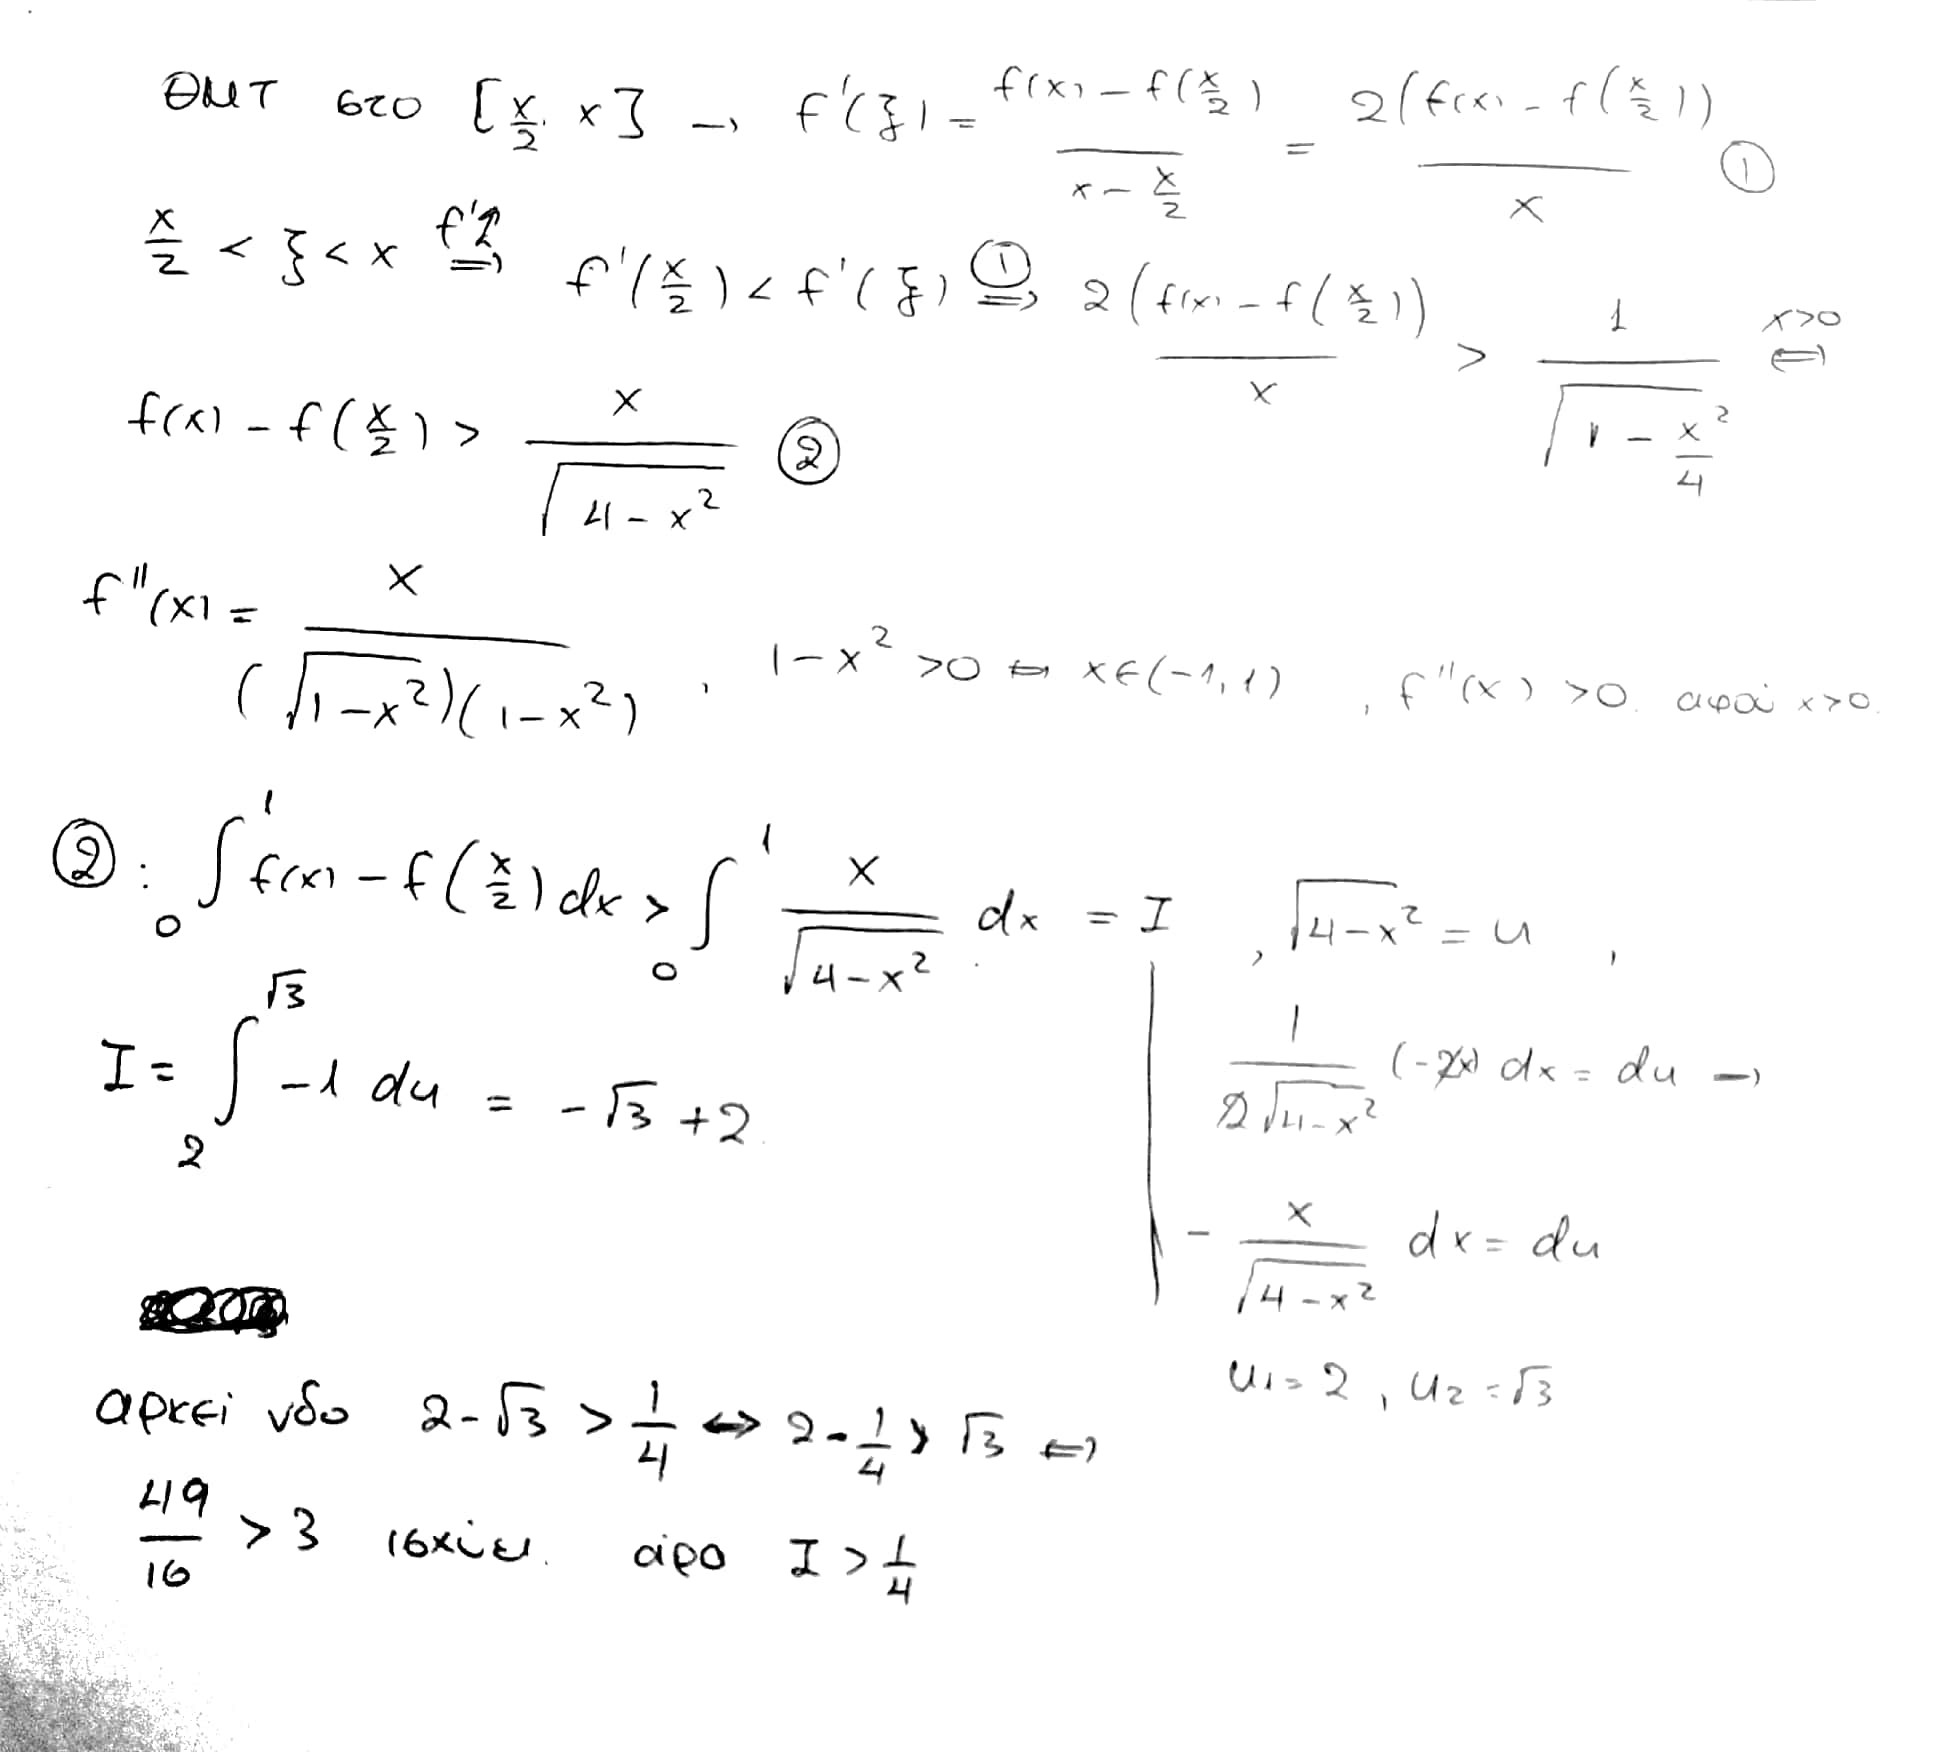 ΘΜΤ στο [x/2, x] → f'(ξ) = (f(x) - f(x/2)) / (x - x/2) = 2(f(x) - f(x/2)) / x ①
x/2 < ξ < x f'↑ ⇒ f'(x/2) < f'(ξ) ① ⇒ 2(f(x) - f(x/2)) / x > 1 / √(1 - x²/4) x>0 ⇔
f(x) - f(x/2) > x / √(4 - x²) ②
f''(x) = x / (√(1-x²))(1-x²) , 1-x² >0 ⇔ x∈(-1,1) , f''(x) >0. αφού x>0.
②: ∫₀¹ f(x) - f(x/2) dx > ∫₀¹ x / √(4-x²) dx = I , √(4-x²) = u ,
I = ∫₂^√3 -1 du = -√3 + 2.
1 / 2√(4-x²) (-2x) dx = du →
- x / √(4-x²) dx = du
u₁ = 2 , u₂ = √3
αρκεί νδο 2-√3 > 1/4 ⇔ 2 - 1/4 > √3 ⇔
49/16 > 3 ισχύει. άρα I > 1/4